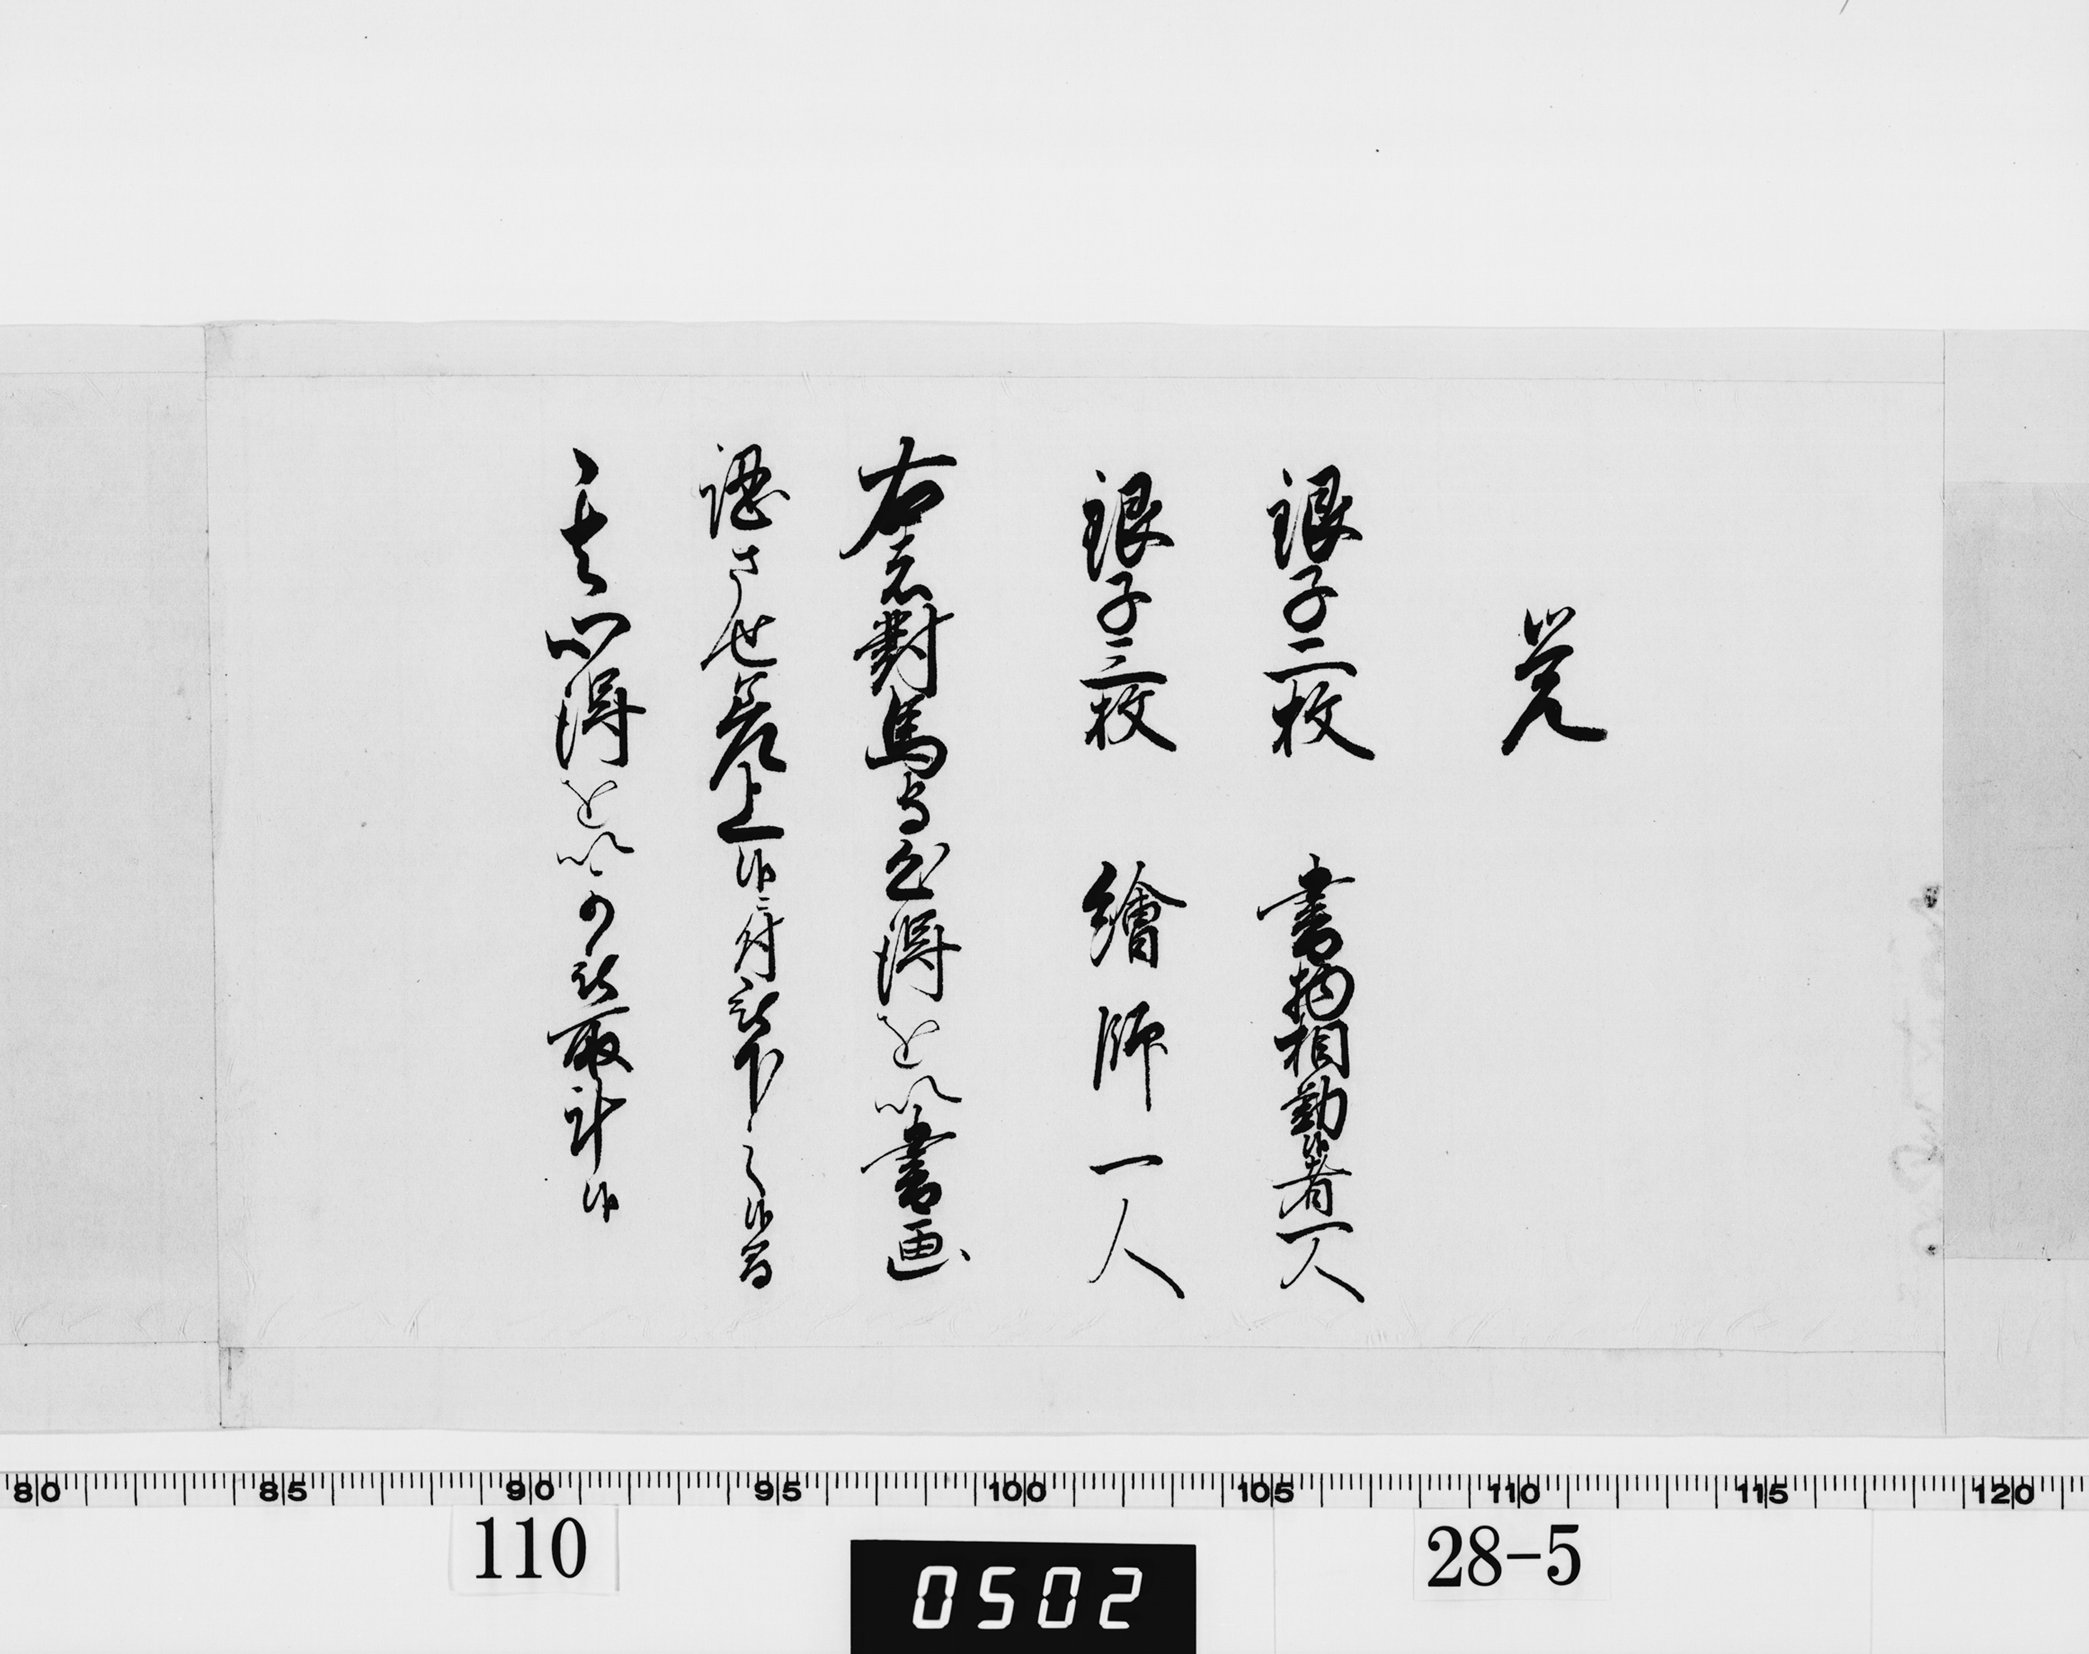 覚
銀子二枚　書物相勤候者一人
銀子三枚　繪師一人
右者對馬守心得を以書画
認させ差上候ニ付被下之候間
其心得を以可被取計候
80 85 90 95 100 105 110 115 120
110 28-5
0502